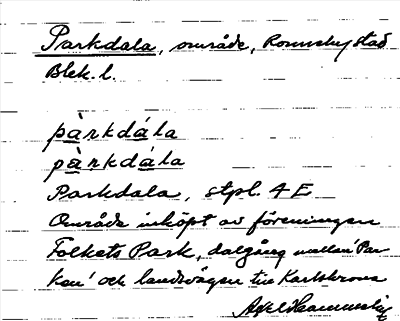 Parkdala, område, Ronneby stad
Blek. l.
pàrkdála
pàrkdála
Parkdala, stpl. 4 E
Område inköpt av föreningen
Folkets Park, dalgång mellan 'Par-
ken' och landsvägen till Karlskrona
Axel